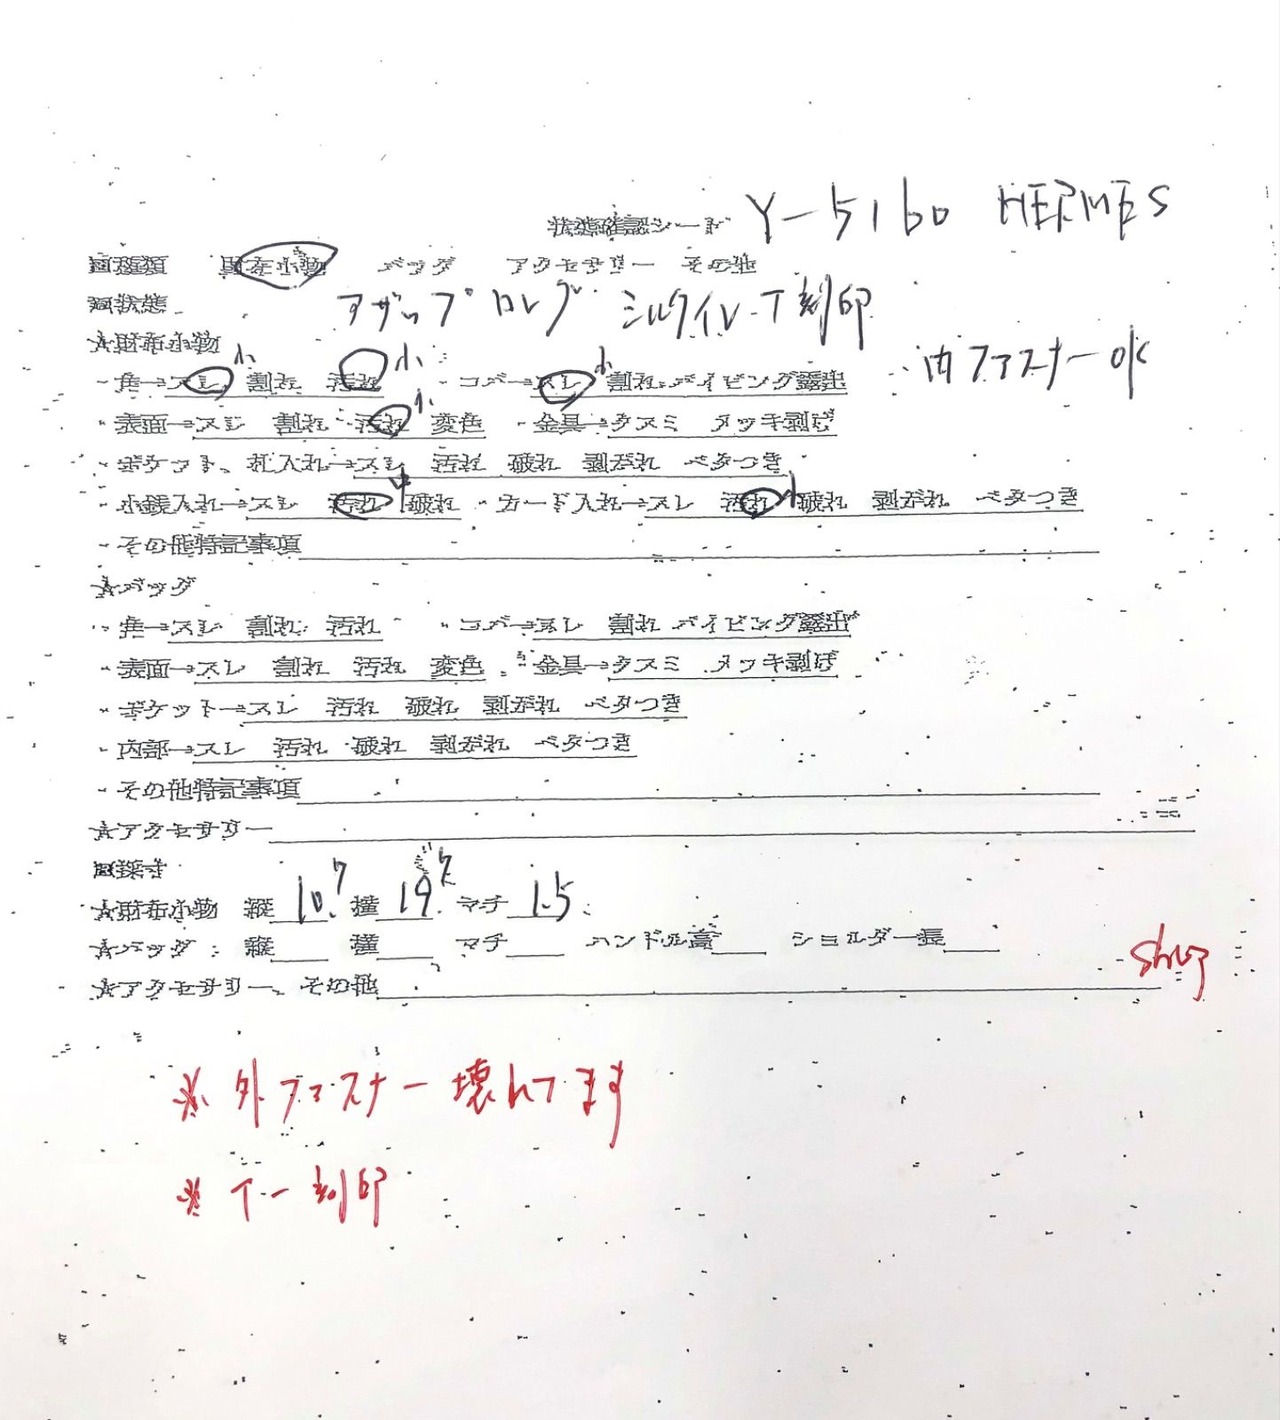 状態確認シード Y-5160 HERMES
■種類 財布小物 バッグ アクセサリー その他
■状態 アザップロング シルクイン T刻印
★財布小物
内ファスナーOK
・角→スレ小 割れ 汚れ小 ・コバ→スレ小 割れ パイピング露出
・表面→スレ 割れ 汚れ小 変色 ・金具→クスミ メッキ剥げ
・ポケット、札入れ→スレ 汚れ 破れ 剥がれ ベタつき
・小銭入れ→スレ 汚れ中 破れ ・カード入れ→スレ 汚れ小 破れ 剥がれ ベタつき
・その他特記事項
★バッグ
・角→スレ 割れ 汚れ ・コバ→スレ 割れ パイピング露出
・表面→スレ 割れ 汚れ 変色 ・金具→クスミ メッキ剥げ
・ポケット→スレ 汚れ 破れ 剥がれ ベタつき
・内部→スレ 汚れ 破れ 剥がれ ベタつき
・その他特記事項
★アクセサリー
■採寸
★財布小物 縦 10.7 横 19.7 マチ 1.5
★バッグ: 縦 横 マチ ハンドル高 ショルダー長
★アクセサリー、その他
※外ファスナー壊れてます
※T-刻印